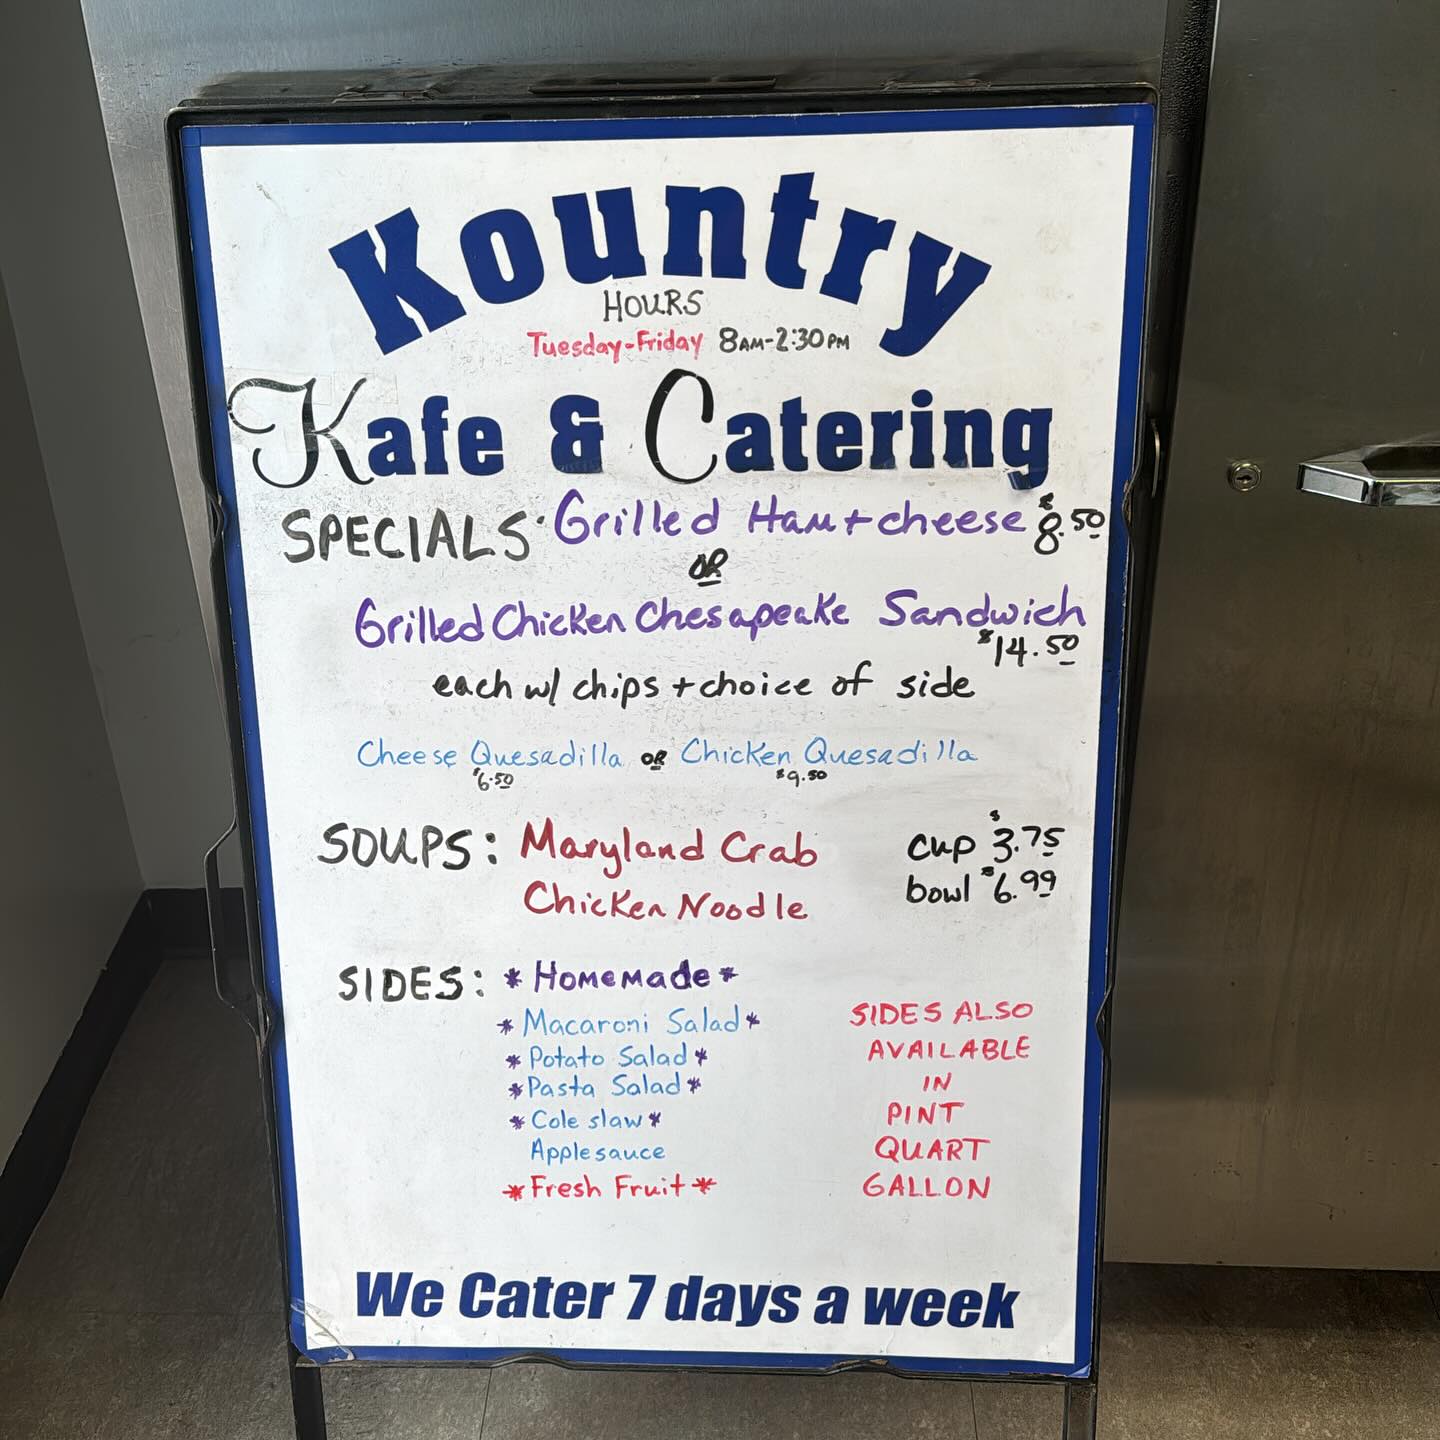 Kountry
HOURS
Tuesday-Friday 8AM-2:30PM
Kafe & Catering
SPECIALS· Grilled Ham + cheese $8.50
OR
Grilled Chicken Chesapeake Sandwich
$14.50
each w/ chips + choice of side
Cheese Quesadilla OR Chicken Quesadilla
$6.50 $9.50
SOUPS: Maryland Crab cup $3.75
Chicken Noodle bowl $6.99
SIDES: *Homemade*
*Macaroni Salad*
*Potato Salad*
*Pasta Salad*
*Cole slaw*
Applesauce
*Fresh Fruit*
SIDES ALSO
AVAILABLE
IN
PINT
QUART
GALLON
We Cater 7 days a week